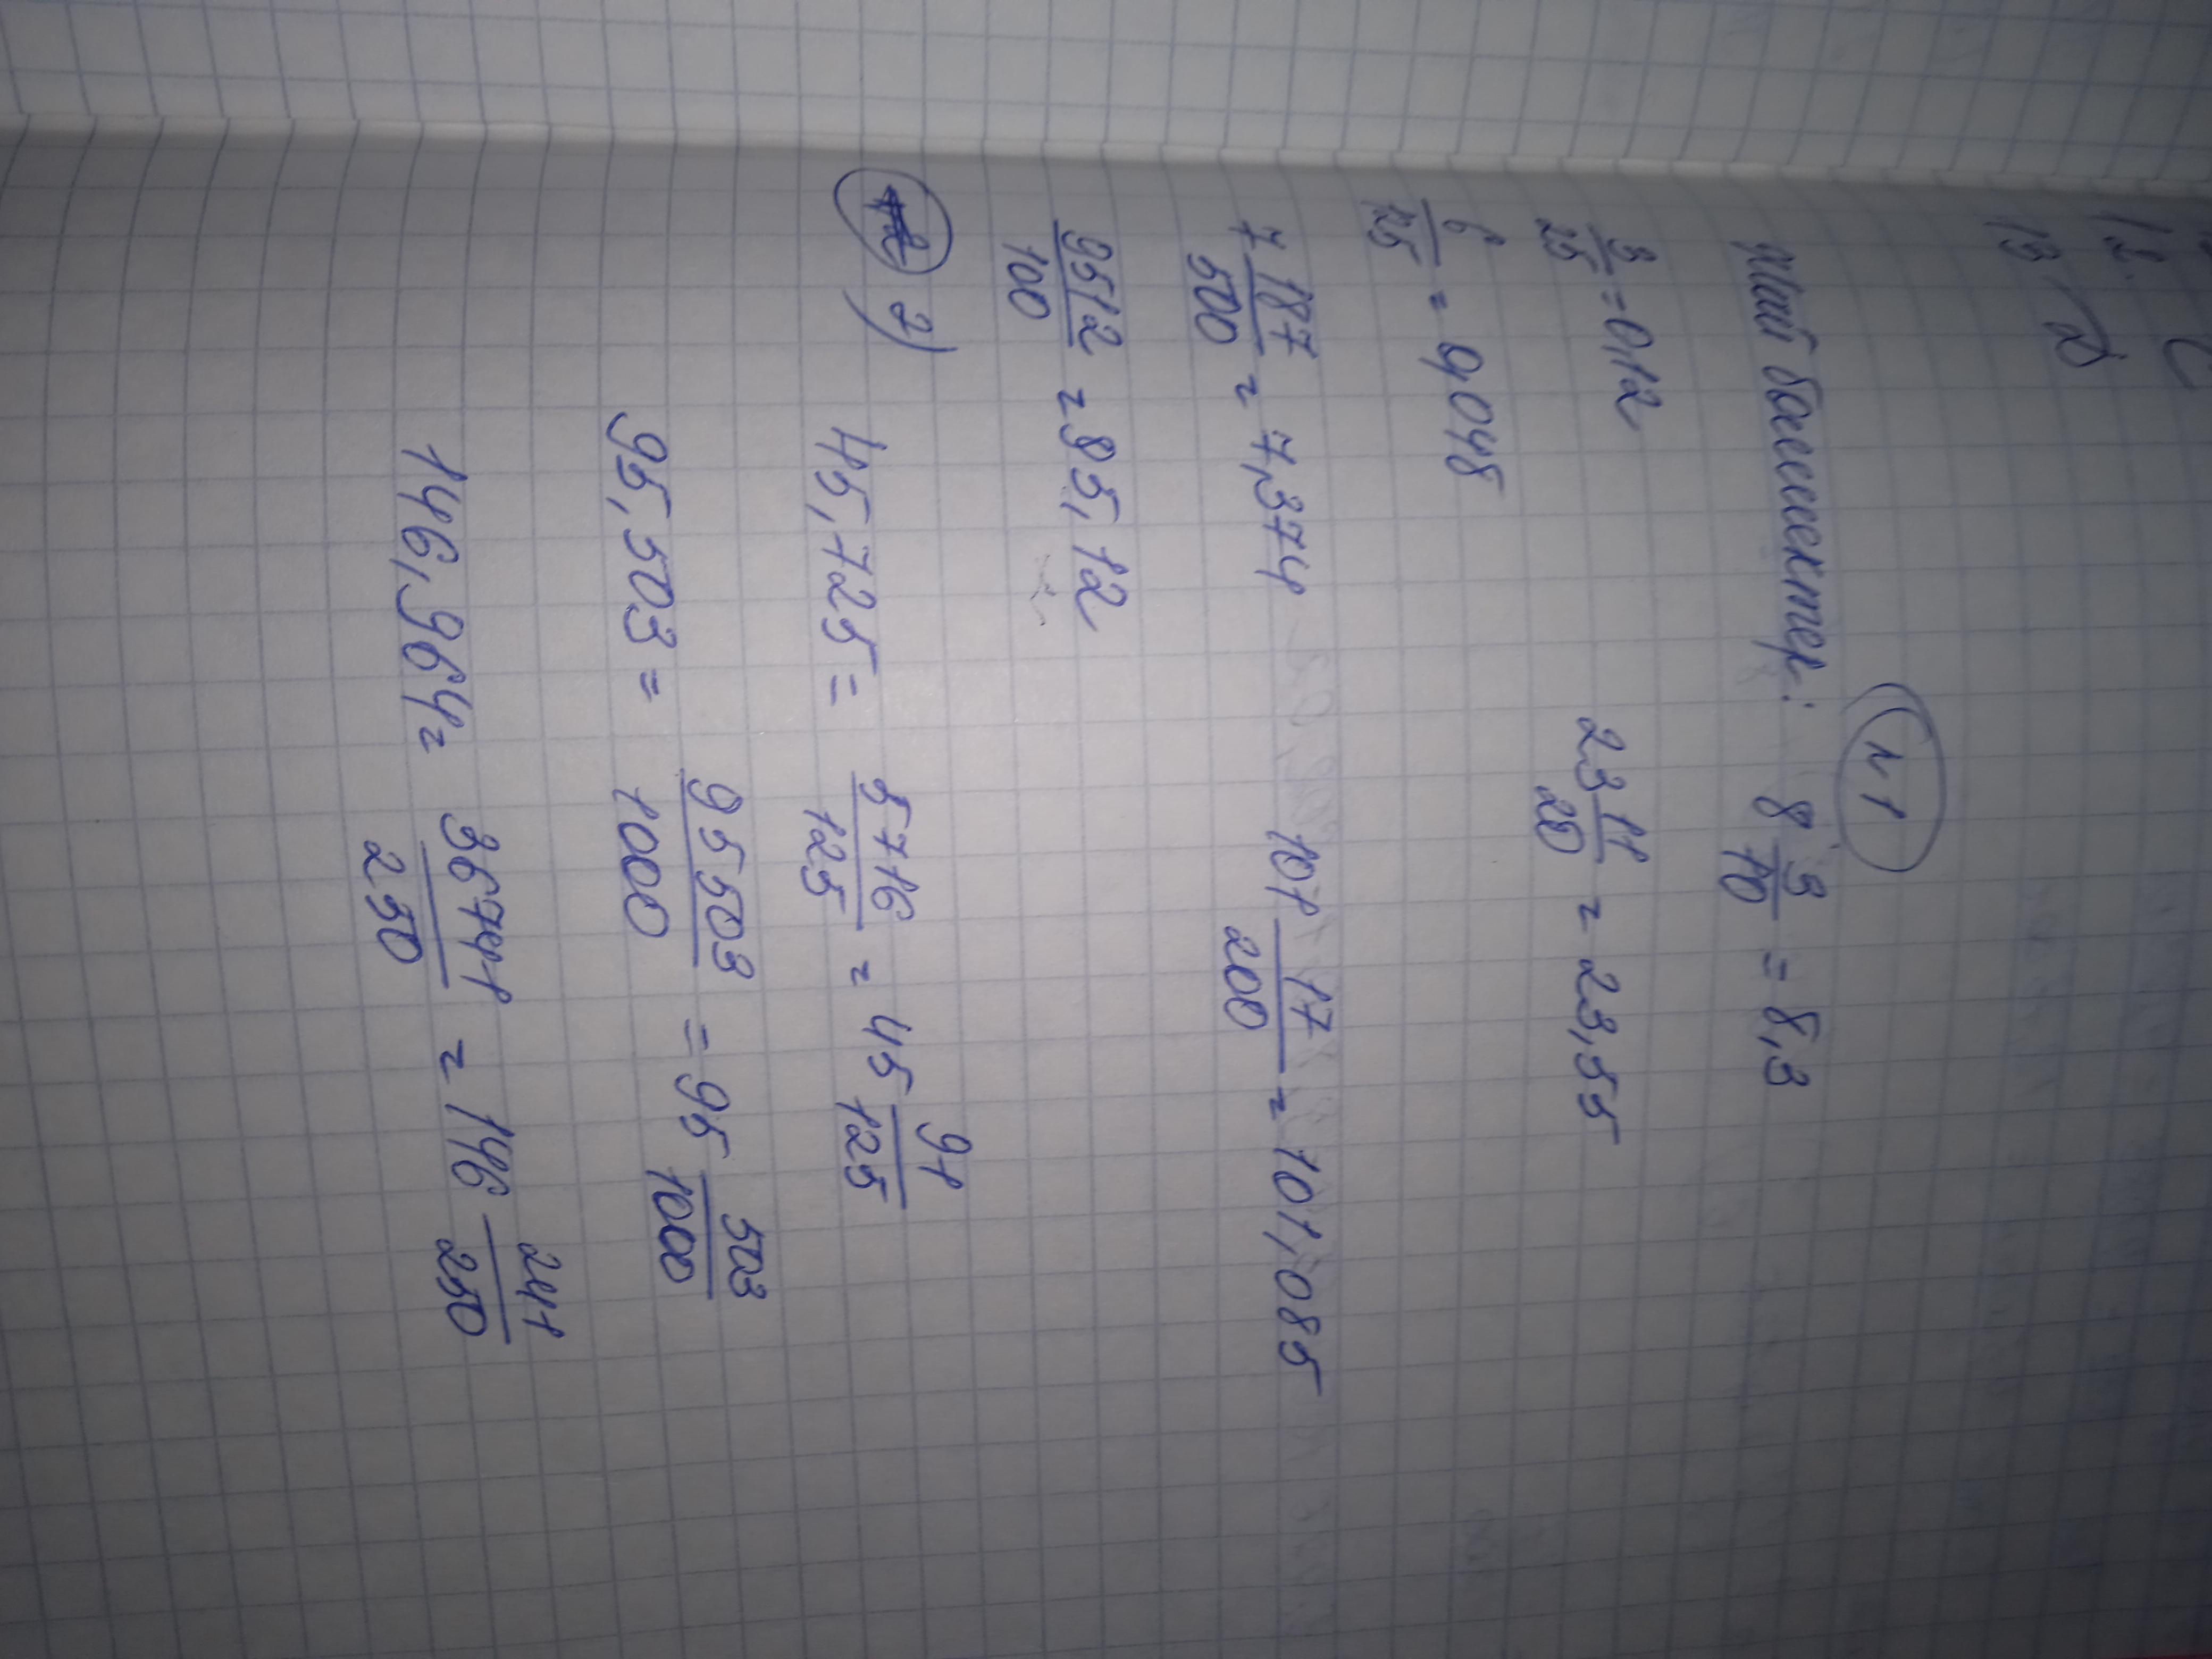 12. С
13
№1
жай бөлшектер: 8 3/10 = 8,3
3/25 = 0,12 23 11/20 = 23,55
6/125 = 0,048
7 187/500 = 7,374 101 17/200 = 101,085
9512/100 = 95,12
2) 45,725 = 5716/125 = 45 91/125
95,503 = 95503/1000 = 95 503/1000
146,964 = 36741/250 = 146 241/250